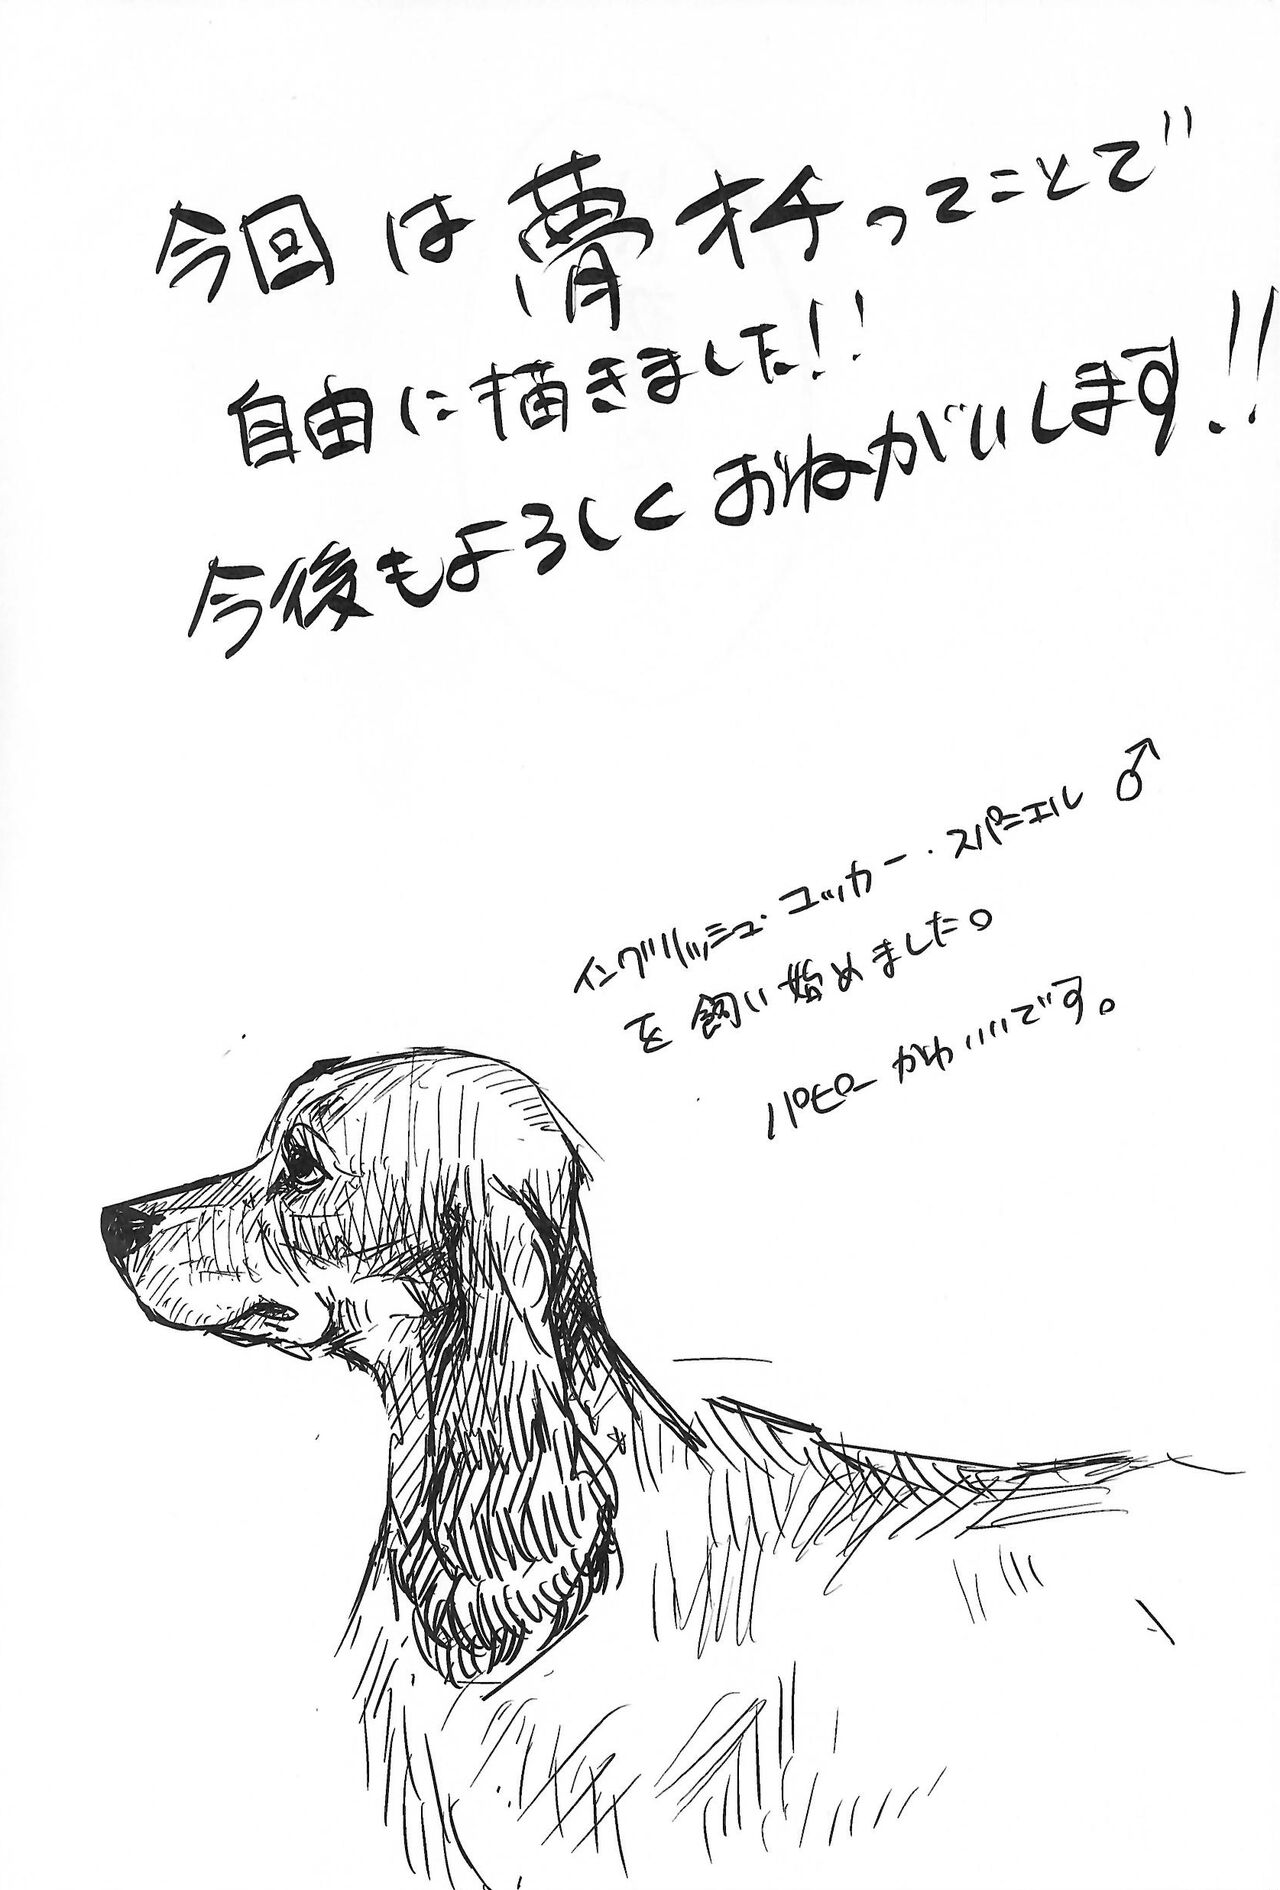 今回は夢オチってことで
自由に描きました!!
今後もよろしくおねがいします!!
イングリッシュ・コッカー・スパニエル♂
を飼い始めました。
パピーかわいいです。